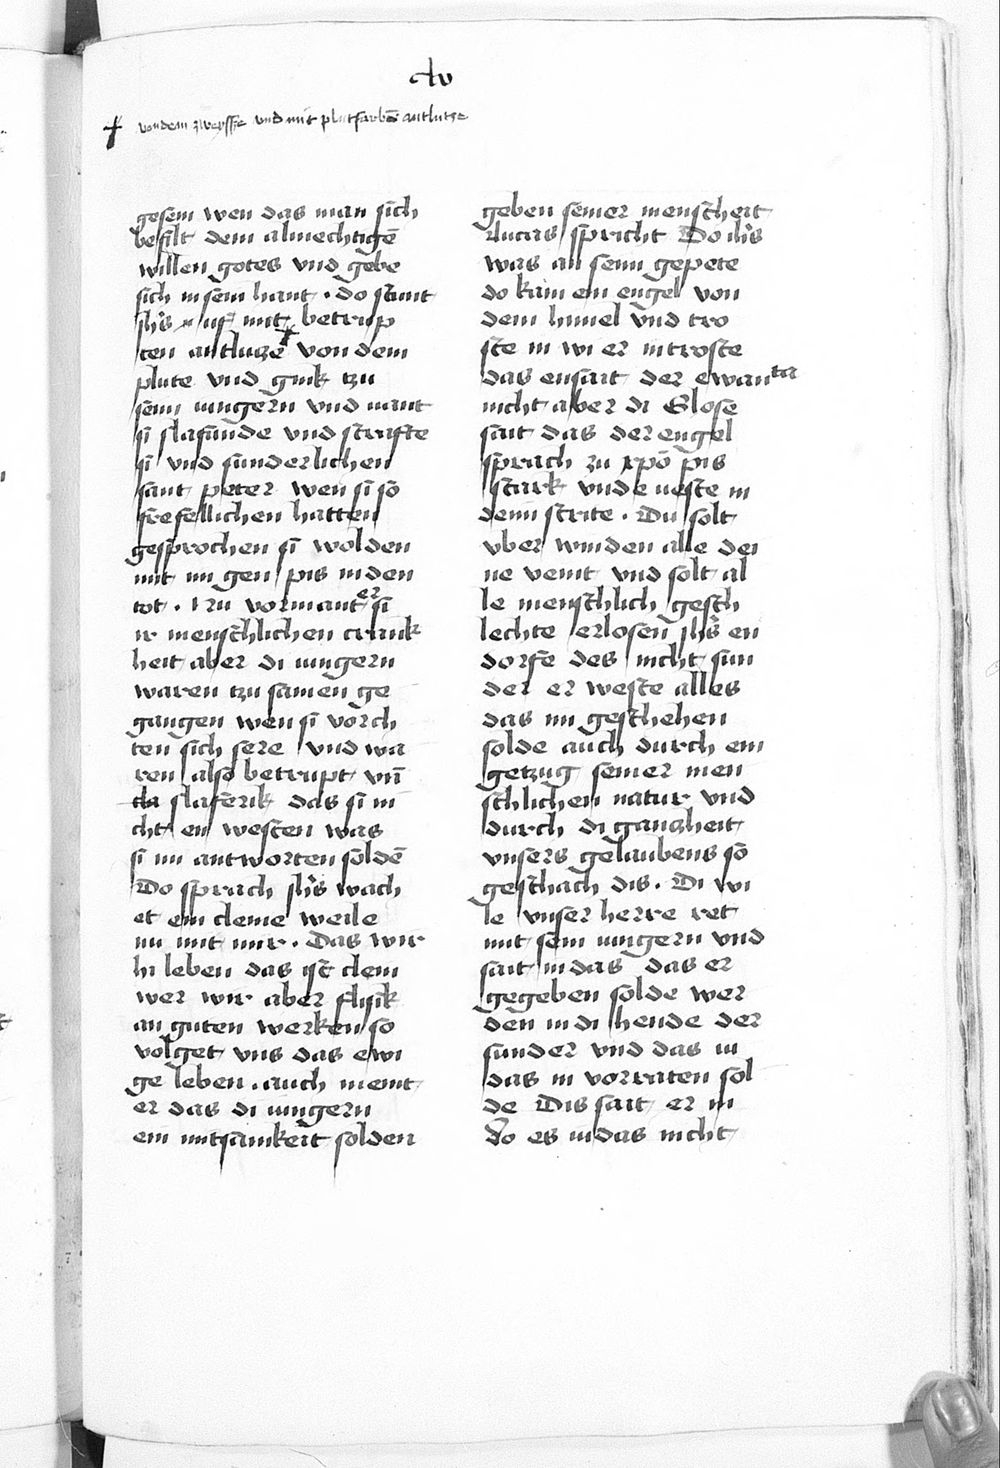 clv
† von dem zweysse vnd mit plutfarbē antlutze
gesein wen das man sich
befilt dem almechtigē
willen gotes vnd gebe
sich in sein hant . do stunt
ih̄s uf mit betrup
ten antlutze † von dem
plute vnd gink tzu
sein iungern vnd vant
si slafunde vnd strafte
si vnd sunderlichen
sant peter wen si so
frefellichen hatten
gesprochen si wolden
mit im gen pis in den
tot . Nu vormanter si
ir menschlichen crank
heit aber di iungern
waren tzu samen ge
gangen wen si vorch
ten sich sere vnd wa
ren also betrupt vn̄
slaferik das si ni
cht en westen was
si im antworten soldē
Do sprach ih̄s wach
et ein cleine weile
nu mit mir . Das wir
hi leben das ist clein
wer wir aber flisik
an guten werken so
volget vns das ewi
ge leben . auch meint
er das di iungern
ein mitsamkeit solden
geben seiner menscheit
lucas spricht Do ih̄s
was an seim gepete
do kam ein engel von
dem himel vnd tro
ste in wi er in troste
das ensait der ewanta
nicht aber di Glose
sait das der engel
sprach zu xpō pis
stark vnde veste in
deim strite . Du solt
vber winden alle dei
ne veint vnd solt al
le menschlich gesch
lechte erlosen ih̄s en
dorfte des nicht sun
der er weste alles
das im geschehen
solde auch durch ein
getzug seiner men
schlichen natur vnd
durch di gantzheit
vnsers gelaubens so
geschach dis . Di wi
le vnser herre ret
mit sein iungern vnd
sait in das das er
gegeben solde wer
den in di hende der
sunder vnd das in
das in vorraten sol
de Dis sait er in
do es iudas nicht